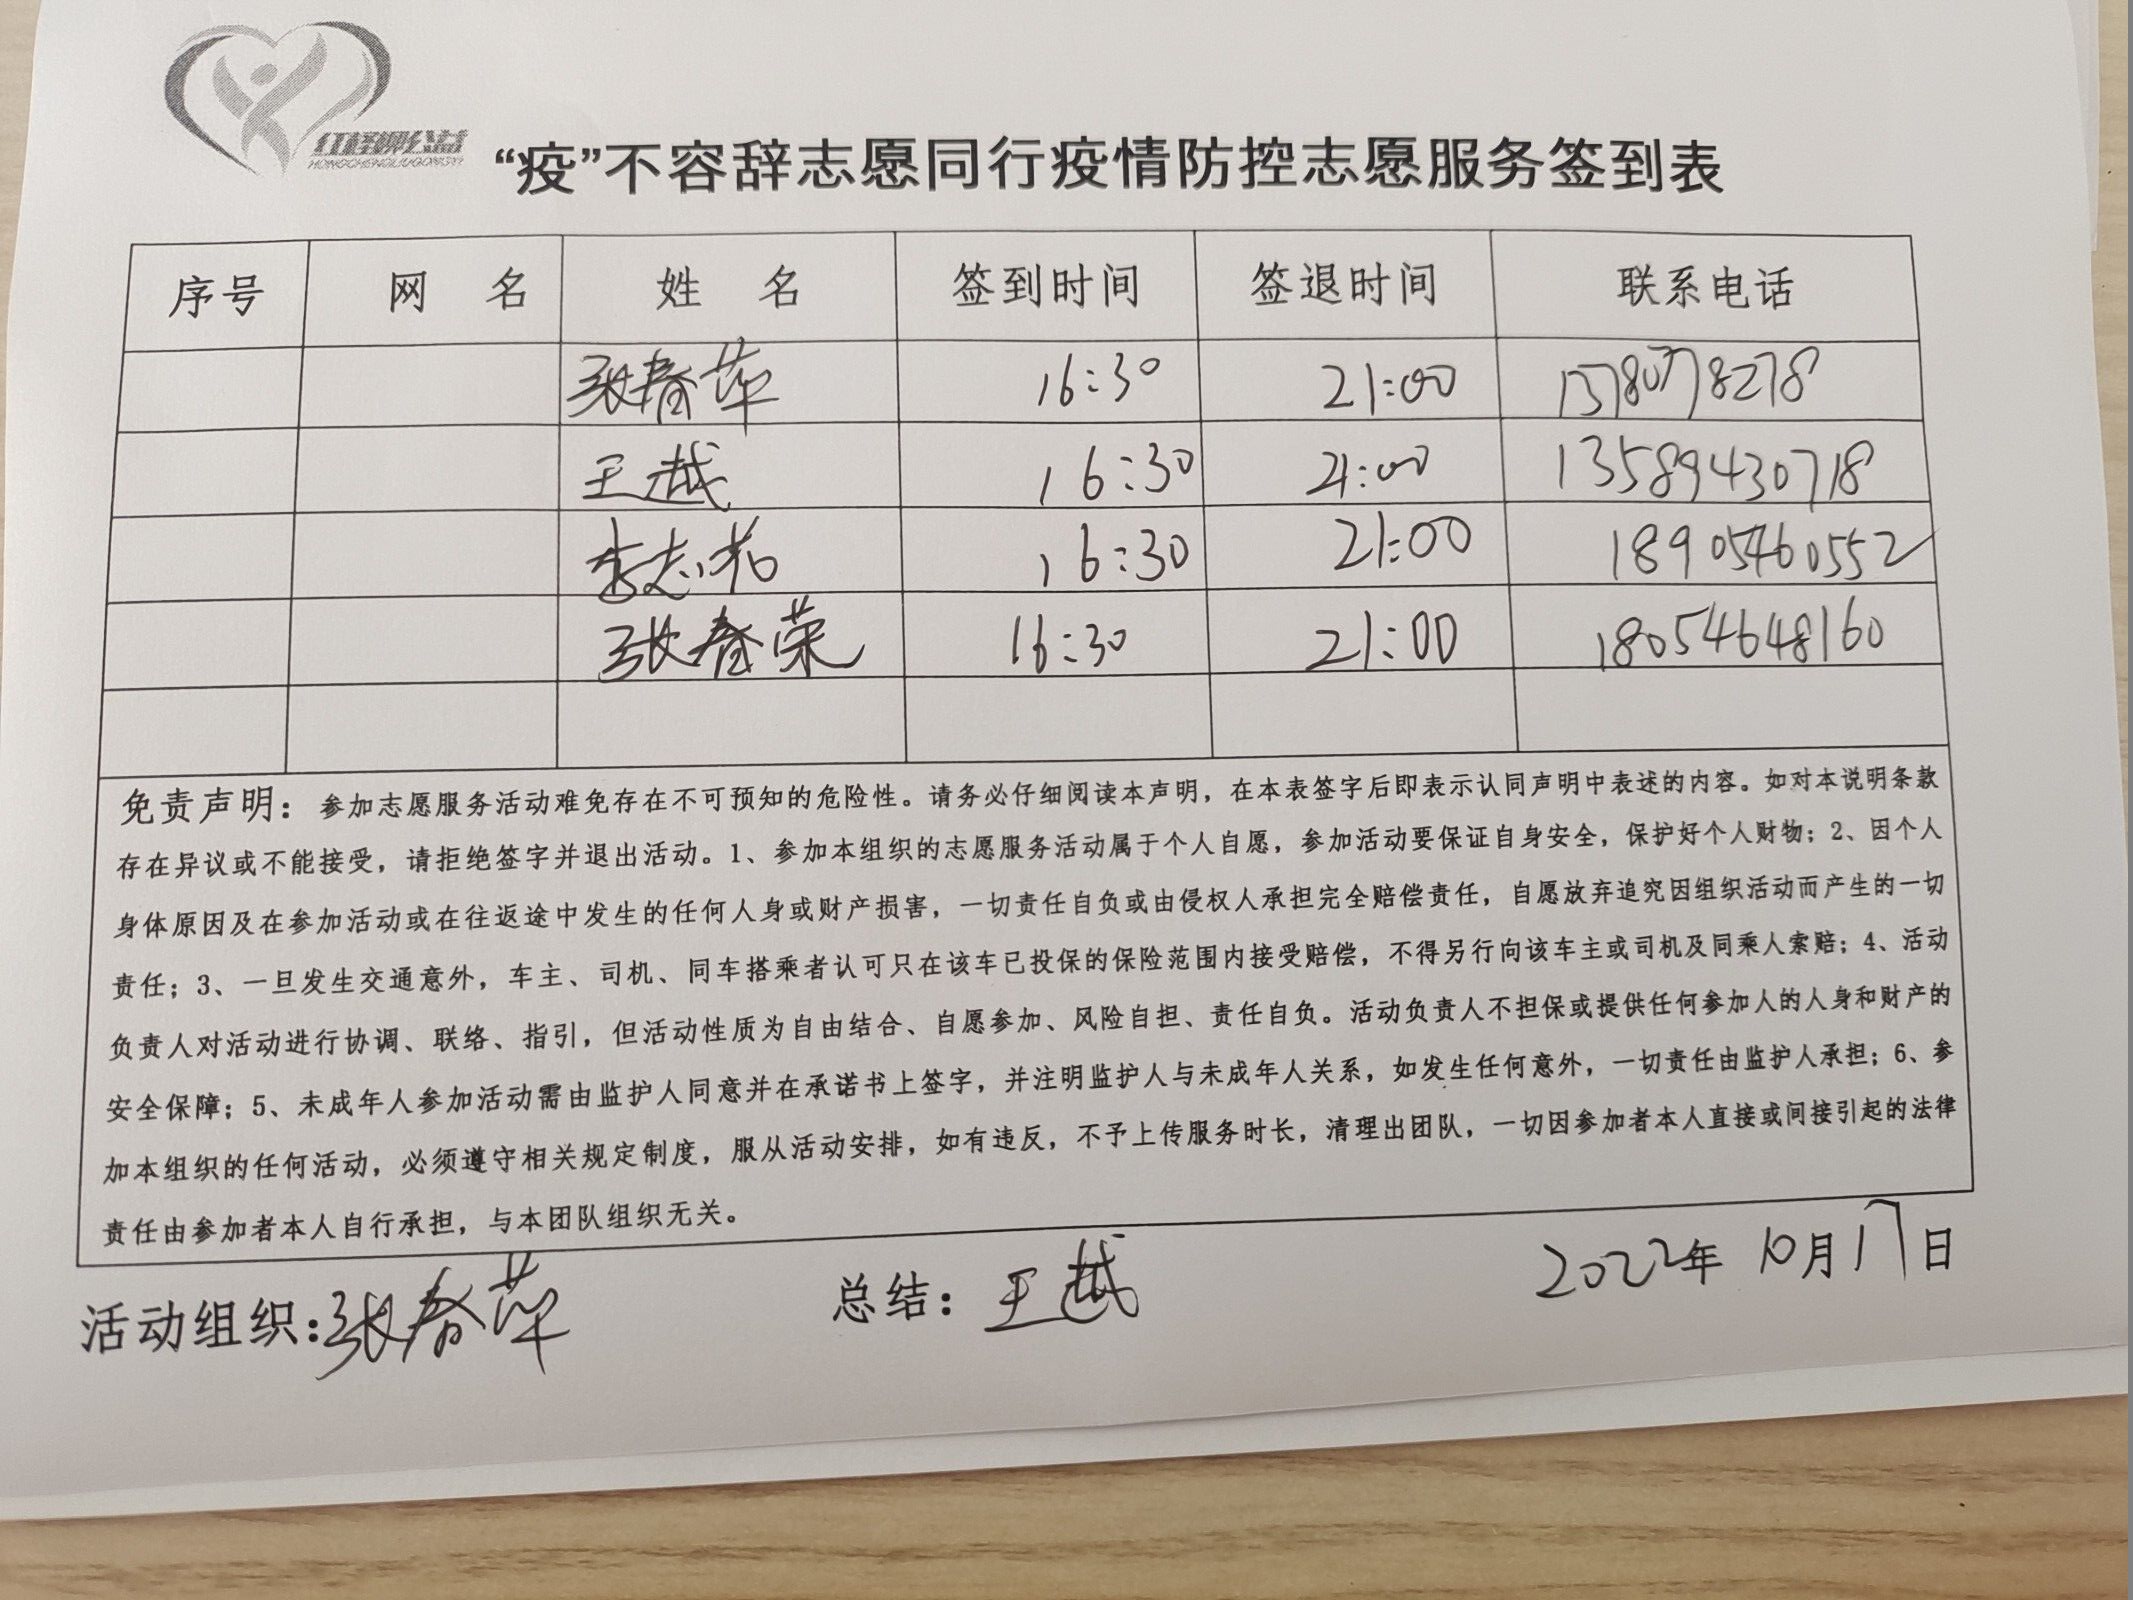 红柽柳公益
HONGCHENGLIUGONGYI
“疫”不容辞志愿同行疫情防控志愿服务签到表
序号 网 名 姓 名 签到时间 签退时间 联系电话
张春萍 16:30 21:00
王越 16:30 21:00 13589430718
李志 16:30 21:00 18905460552
张春荣 16:30 21:00 18054648160
免责声明：参加志愿服务活动难免存在不可预知的危险性。请务必仔细阅读本声明，在本表签字后即表示认同声明中表述的内容。如对本说明条款
存在异议或不能接受，请拒绝签字并退出活动。1、参加本组织的志愿服务活动属于个人自愿，参加活动要保证自身安全，保护好个人财物；2、因个人
身体原因及在参加活动或在往返途中发生的任何人身或财产损害，一切责任自负或由侵权人承担完全赔偿责任，自愿放弃追究因组织活动而产生的一切
责任；3、一旦发生交通意外，车主、司机、同车搭乘者认可只在该车已投保的保险范围内接受赔偿，不得另行向该车主或司机及同乘人索赔；4、活动
负责人对活动进行协调、联络、指引，但活动性质为自由结合、自愿参加、风险自担、责任自负。活动负责人不担保或提供任何参加人的人身和财产的
安全保障；5、未成年人参加活动需由监护人同意并在承诺书上签字，并注明监护人与未成年人关系，如发生任何意外，一切责任由监护人承担；6、参
加本组织的任何活动，必须遵守相关规定制度，服从活动安排，如有违反，不予上传服务时长，清理出团队，一切因参加者本人直接或间接引起的法律
责任由参加者本人自行承担，与本团队组织无关。
活动组织：张春萍 总结：王越 2022年 10月17日